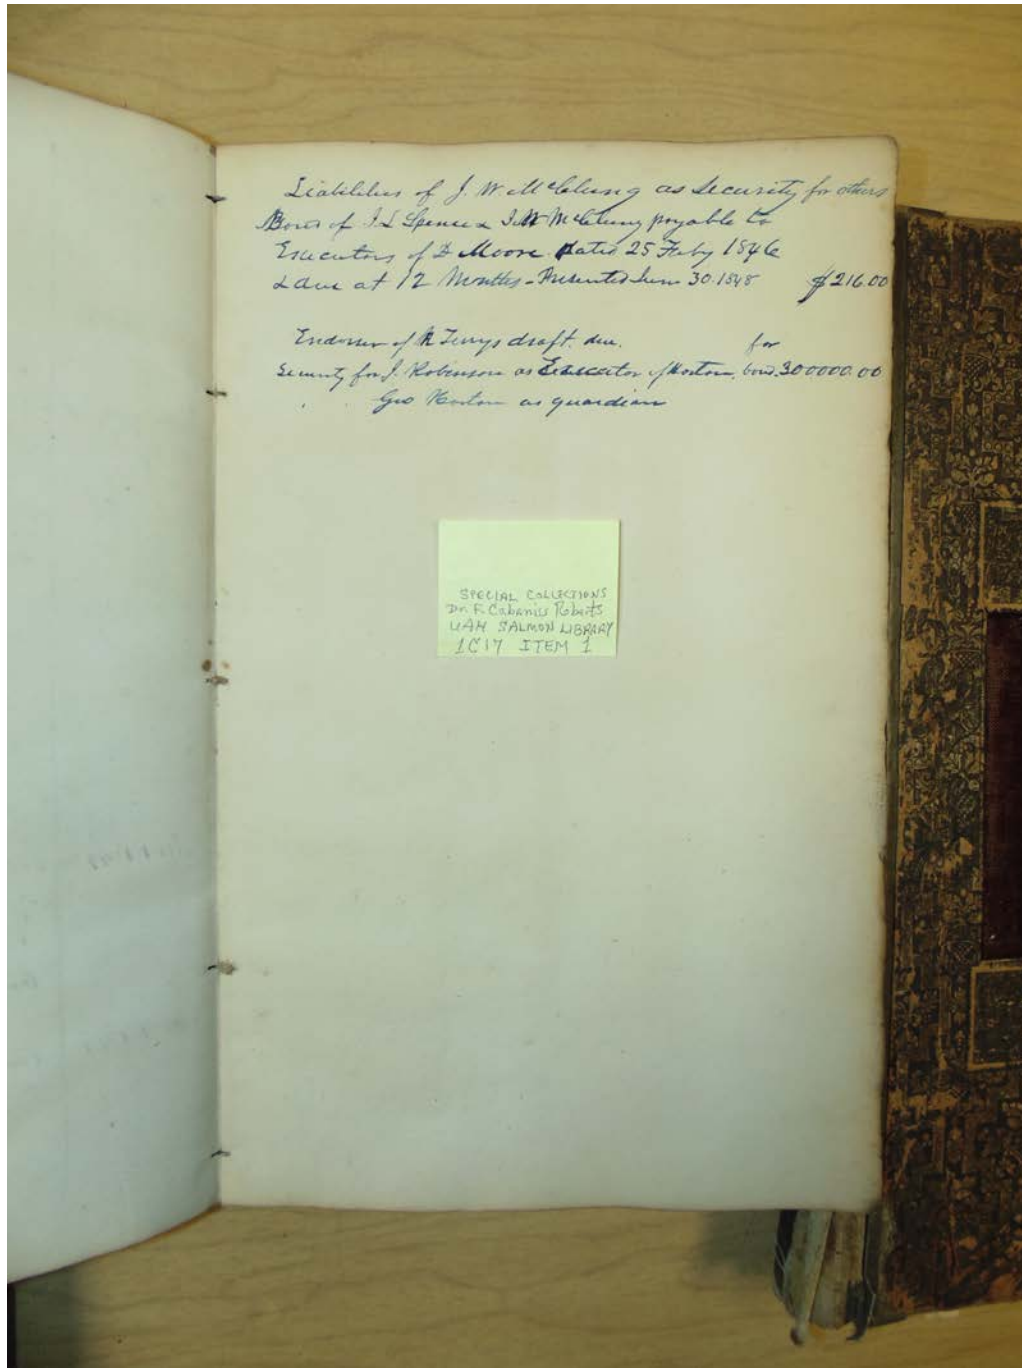 Liabilities of J. W. McClung as Security for others
Bond of J L Spence & J W McClung payable to
Executors of D Moore dated 25 Feby 1846
& due at 12 Months - Presented June 30. 1848 $216.00
Endorser of N Terrys draft. due. for
Security for J. Robinson as Executor of Horton, bond. 300000.00
Geo Horton as guardian
SPECIAL COLLECTIONS
Dr. F. Cabaniss Roberts
UAH SALMON LIBRARY
1C17 ITEM 1